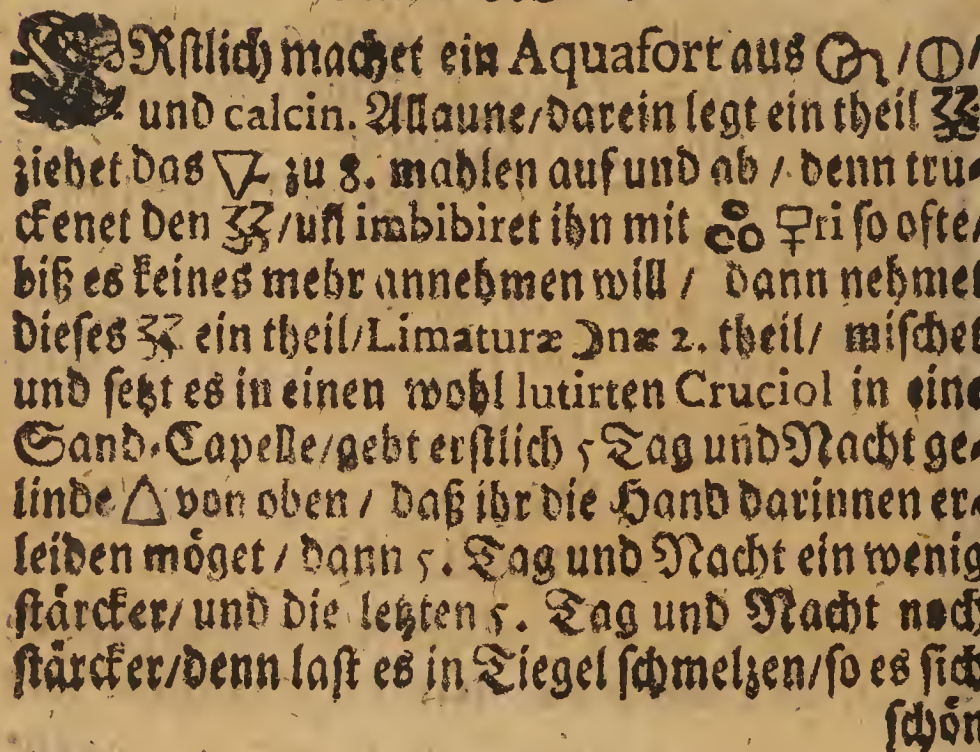 ERstlich machet ein Aquafort aus 🜕 / 🜔 /
und calcin. Allaune / darein legt ein theil
ziehet das 🜅 zu 8. mahlen auf und ab / denn tru-
ckenet den / uñ imbibiret ihn mit ♀ri so offte /
biß es keines mehr annehmen will / dann nehmet
dieses ein theil / Limaturæ ☽næ 2. theil / mischet
und setzt es in einen wohl lutirten Cruciol in eine
Sand-Capelle / gebt erstlich 5 Tag und Nacht ge-
linde 🜂 von oben / daß ihr die Hand darinnen er-
leiden möget / dann 5. Tag und Nacht ein wenig
stärcker / und die letzten 5. Tag und Nacht noch
stärcker / denn last es in Tiegel schmelzen / so es sich
schön